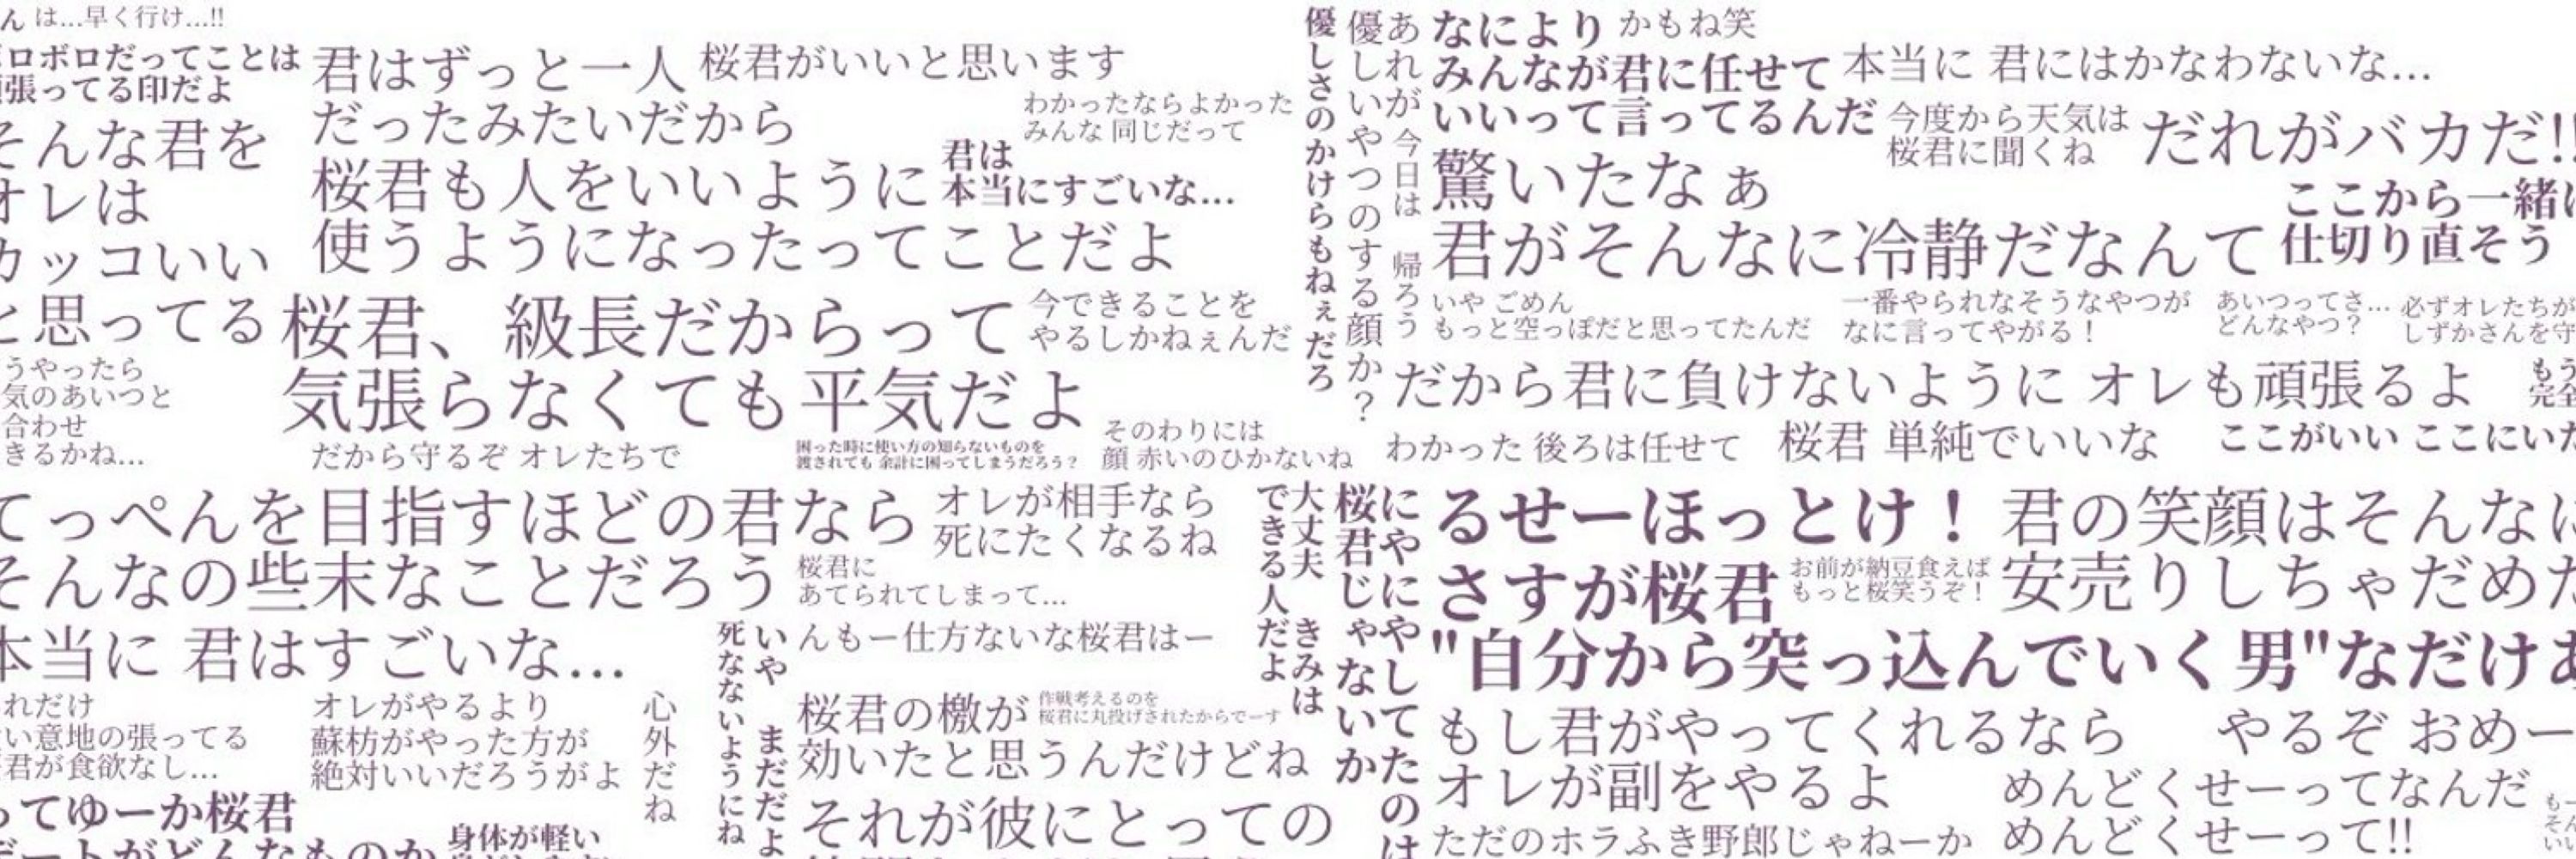 ん は…早く行け…!!
ロボロだってことは
張ってる印だよ
そんな君を
オレは
カッコいい
と思ってる
うやったら
気のあいつと
合わせ
きるかね…
君はずっと一人
だったみたいだから
桜君も人をいいように
使うようになったってことだよ
桜君がいいと思います
わかったならよかった
みんな 同じだって
君は
本当にすごいな…
桜君、級長だからって
気張らなくても平気だよ
今できることを
やるしかねぇんだ
だから守るぞ オレたちで
困った時に使い方の知らないものを
渡されても 余計に困ってしまうだろう？
そのわりには
顔 赤いのひかないね
優しさのかけらもねぇだろ
あれが
優しいやつのする顔か？
今日は 帰ろう
なにより
みんなが君に任せて
いいって言ってるんだ
かもね笑
本当に 君にはかなわないな…
今度から天気は
桜君に聞くね
だれがバカだ!!
驚いたなぁ
君がそんなに冷静だなんて
ここから一緒に
仕切り直そう
いや ごめん
もっと空っぽだと思ってたんだ
一番やられなそうなやつが
なに言ってやがる！
あいつってさ…
どんなやつ？
必ずオレたちが
しずかさんを守
だから君に負けないように オレも頑張るよ
もう
完全
わかった 後ろは任せて
桜君 単純でいいな
ここがいい ここにいた
てっぺんを目指すほどの君なら
そんなの些末なことだろう
オレが相手なら
死にたくなるね
桜君に
あてられてしまって…
本当に 君はすごいな…
れだけ
い意地の張ってる
君が食欲なし…
オレがやるより
蘇枋がやった方が
絶対いいだろうがよ
心外だね
ってゆーか桜君
身体が軽い
いや まだだよ
死なないようにね
んもー仕方ないな桜君はー
桜君の檄が
効いたと思うんだけどね
作戦考えるのを
桜君に丸投げされたからでーす
それが彼にとっての
大丈夫 きみは
できる人だよ
にやにやしてたのは
桜君じゃないか
るせーほっとけ！
さすが桜君
お前が納豆食えば
もっと桜笑うぞ！
君の笑顔はそんなに
安売りしちゃだめだ
"自分から突っ込んでいく男"なだけあ
もし君がやってくれるなら
オレが副をやるよ
ただのホラふき野郎じゃねーか
やるぞ おめー
めんどくせーってなんだ
めんどくせーって!!